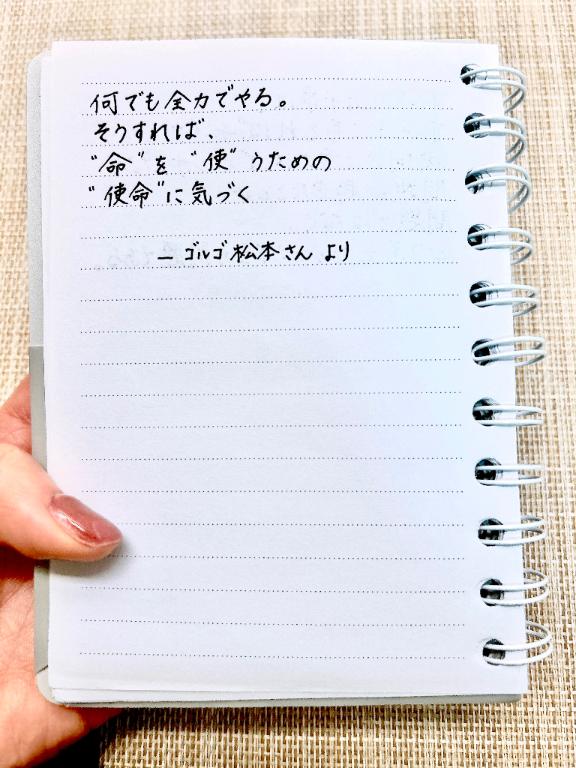 何でも全力でやる。
そうすれば、
"命"を"使"うための
"使命"に気づく
— ゴルゴ松本さんより